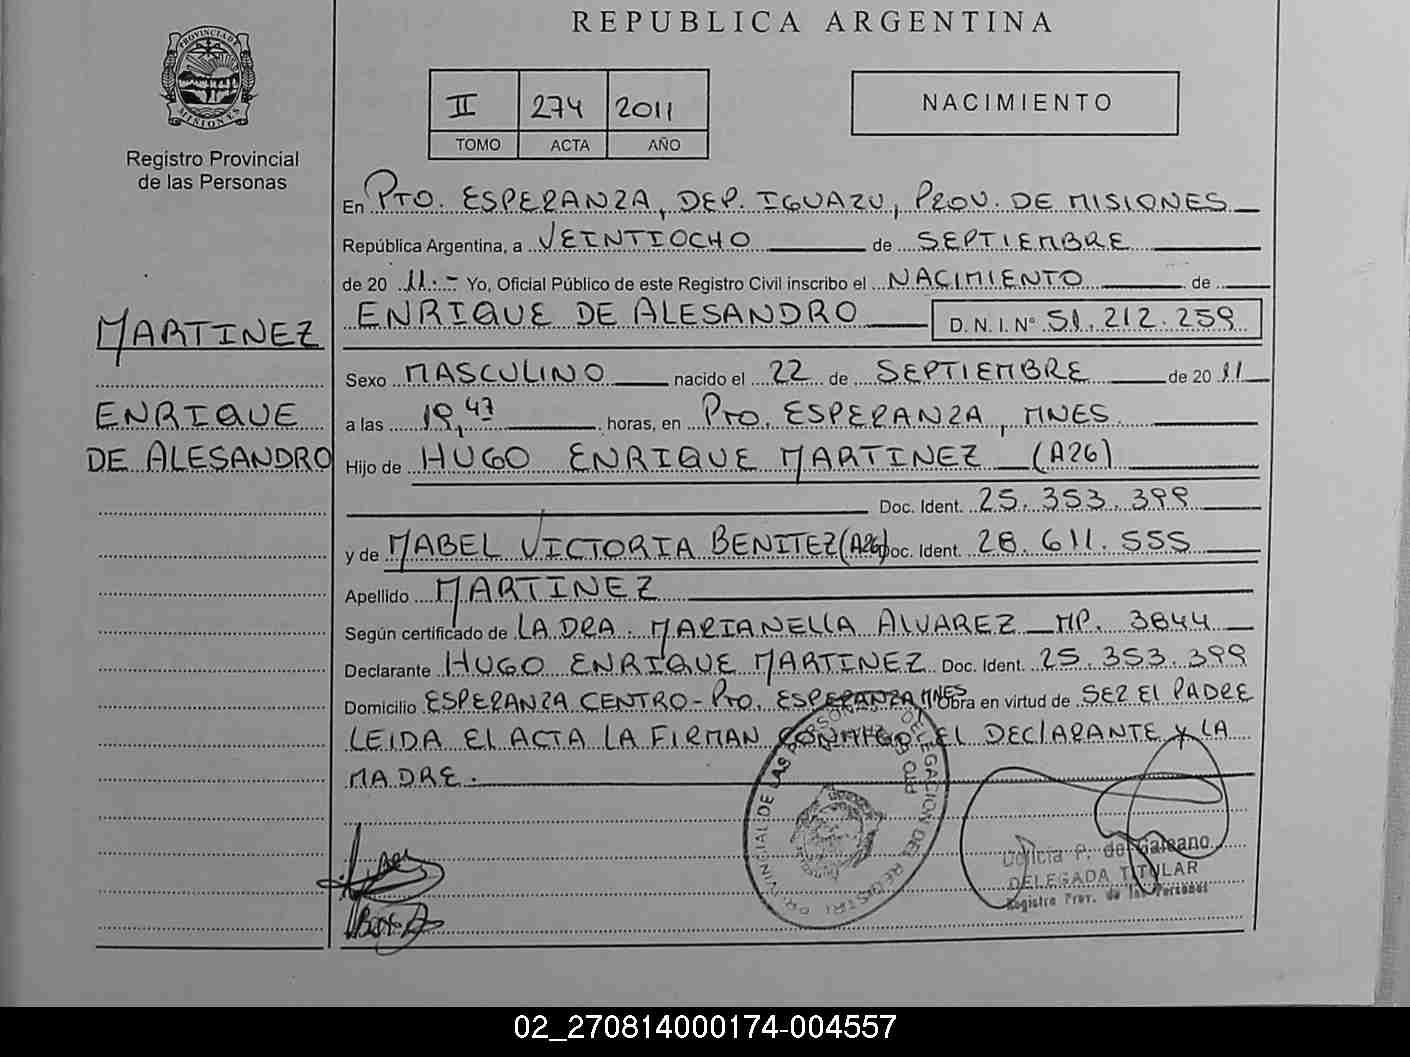 REPUBLICA ARGENTINA
PROVINCIA DE MISIONES
Registro Provincial
de las Personas
II 274 2011
TOMO ACTA AÑO
NACIMIENTO
En PTO. ESPERANZA, DEP. IGUAZU, PROV. DE MISIONES
República Argentina, a VEINTIOCHO de SEPTIEMBRE
de 20 11.- Yo, Oficial Público de este Registro Civil inscribo el NACIMIENTO de
ENRIQUE DE ALESANDRO D. N. I. Nº 51.212.259
MARTINEZ
ENRIQUE
DE ALESANDRO
Sexo MASCULINO nacido el 22 de SEPTIEMBRE de 20 11
a las 19,47 horas, en PTO. ESPERANZA, MNES.
Hijo de HUGO ENRIQUE MARTINEZ (A26)
Doc. Ident. 25.353.399
y de MABEL VICTORIA BENITEZ (A26) Doc. Ident. 28.611.555
Apellido MARTINEZ
Según certificado de LA DRA. MARIANELLA ALVAREZ MP. 3844
Declarante HUGO ENRIQUE MARTINEZ Doc. Ident. 25.353.399
Domicilio ESPERANZA CENTRO - PTO. ESPERANZA MNES Obra en virtud de SER EL PADRE
LEIDA EL ACTA LA FIRMAN CONMIGO EL DECLARANTE Y LA
MADRE.
PROVINCIAL DE LAS PERSONAS
DELEGACION DEL REGISTRO
P. de Galeano
DELEGADA TITULAR
Registro Prov. de las Personas
02_270814000174-004557